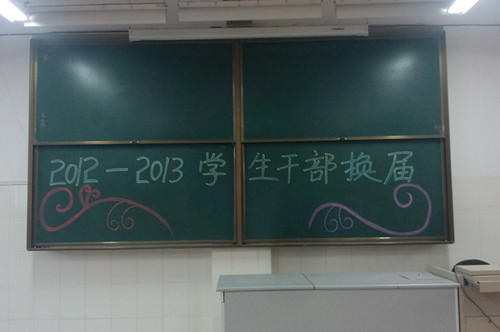 2012-2013学生干部换届